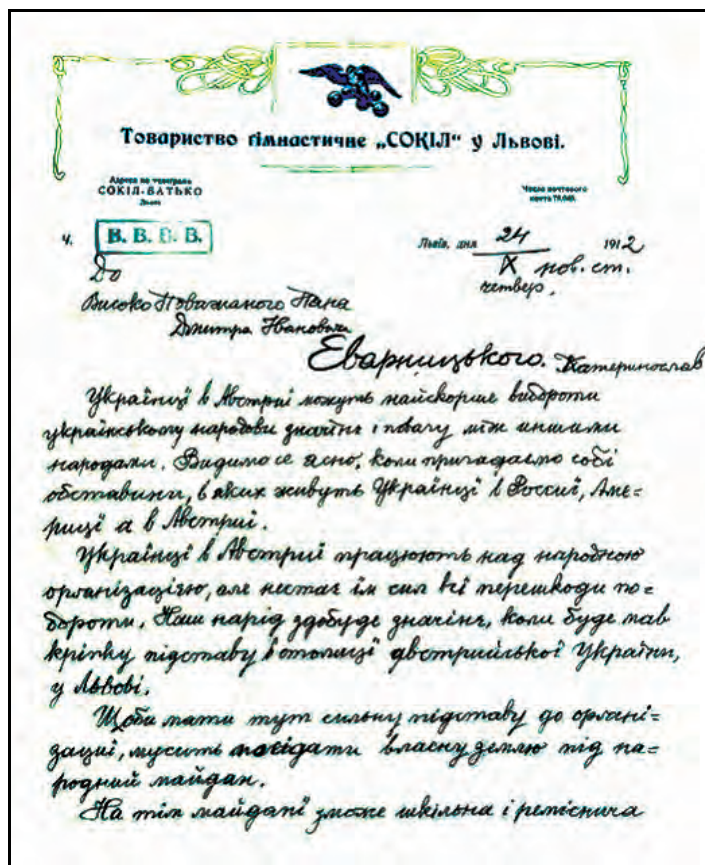 Товариство гімнастичне „СОКІЛ“ у Львові.
Адреса на телеграми
СОКІЛ-БАТЬКО
Львів
Число почтового
конта 79.049.
Ч. В. В. П. В.
Львів, дня 24 1912
X нов. ст.
четвер.
До
Високо Поважаного Пана
Дмитра Івановича
Еварницького. Катеринослав
Українці в Австриї можуть найскорше вибороти
українському народови значінє і повагу між иншими
народами. Видимо се ясно, коли пригадаємо собі
обставини, в яких живуть Українці в Россиї, Аме-
риці а в Австриї.
Українці в Австриї працюють над народною
орґанізацією, але нестає їм сил всі перешкоди по-
бороти. Наш нарід здобуде значінє, коли буде мав
кріпку підставу в столиці австрийської України,
у Львові.
Щоби мати тут сильну підставу до орґані-
зациї, мусить посідати власну землю під на-
родний майдан.
На тім майдані зможе шкільна і реміснича